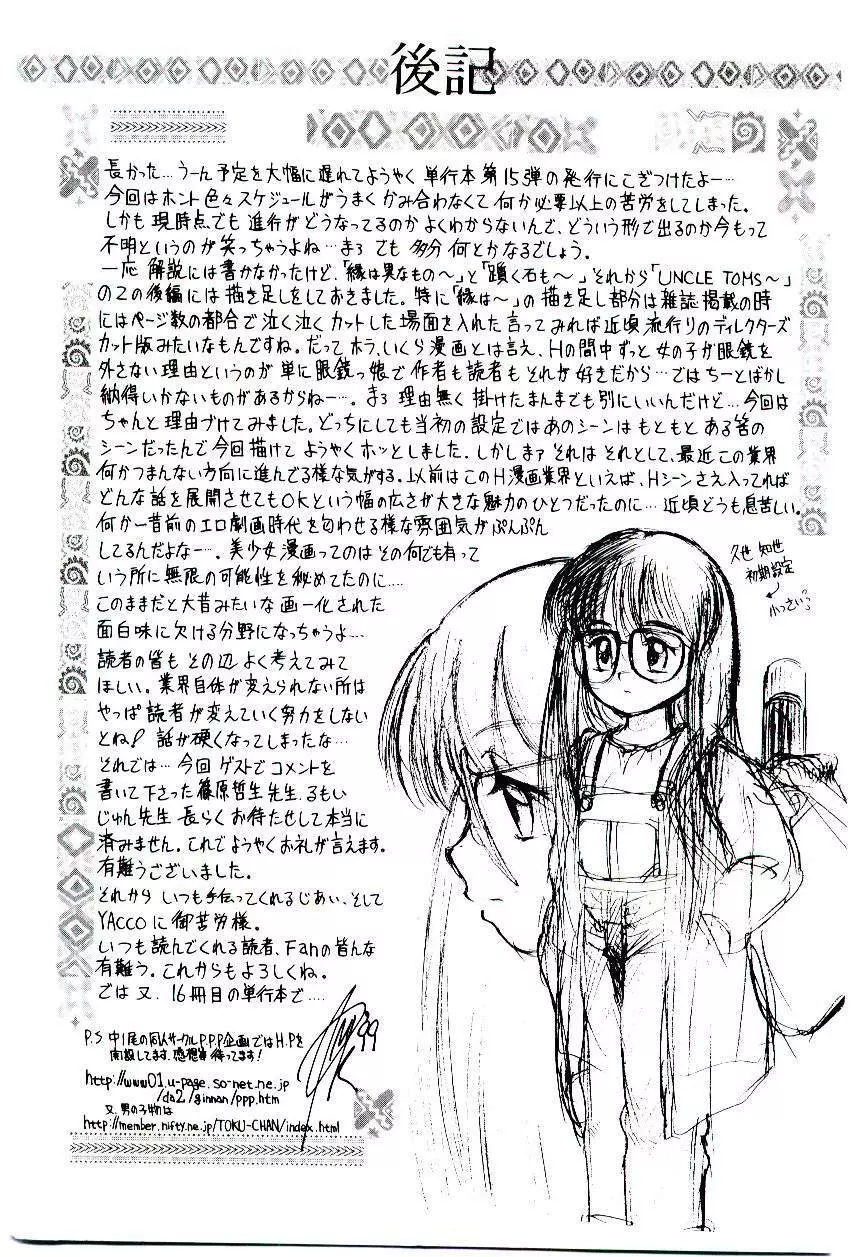 後記
長かった…うーん予定を大幅に遅れてようやく単行本第15弾の発行にこぎつけたよー…
今回はホント色々スケジュールがうまくかみ合わなくて何か必要以上の苦労をしてしまった。
しかも現時点でも進行がどうなってるのかよくわからないんで、どういう形で出るのか今もって
不明というのが笑っちゃうよね…まぁでも多分何とかなるでしょう。
一応解説には書かなかったけど、「縁は異なもの〜」と「躓く石も〜」それから「UNCLE TOMS〜」
の後編には描き足しをしておきました。特に「縁は〜」の描き足し部分は雑誌掲載の時
にはページ数の都合で泣く泣くカットした場面を入れた言ってみれば近頃流行りのディレクターズ
カット版みたいなもんですね。だってホラ、いくら漫画とは言え、Hの間中ずっと女の子が眼鏡を
外さない理由というのが単に眼鏡っ娘で作者も読者もそれが好きだから…ではちーとばかし
納得いかないものがあるからねー…。まぁ理由無く掛けたまんまでも別にいいんだけど…今回は
ちゃんと理由づけてみました。どっちにしても当初の設定ではあのシーンはもともとある筈の
シーンだったんで今回描けてようやくホッとしました。しかしまァそれはそれとして、最近この業界
何かつまんない方向に進んでる様な気がする。以前はこのH漫画業界といえば、Hシーンさえ入ってれば
どんな話を展開させてもOKという幅の広さが大きな魅力のひとつだったのに…近頃どうも息苦しい。
何か一昔前のエロ劇画時代を匂わせる様な雰囲気がぷんぷん
してるんだよなー…。美少女漫画ってのはその何でも有って
いう所に無限の可能性を秘めてたのに…
このままだと大昔みたいな画一化された
面白味に欠ける分野になっちゃうよ…
読者の皆もその辺よく考えてみて
ほしい。業界自体が変えられない所は
やっぱ読者が変えていく努力をしない
とね! 話が硬くなってしまったな…
それでは…今回ゲストでコメントを
書いて下さった篠原哲生先生、るもい
じゅん先生長らくお待たせして本当に
済みません。これでようやくお礼が言えます。
有難うございました。
それからいつも手伝ってくれるじあい、そして
YACCOに御苦労様。
いつも読んでくれる読者、Fanの皆んな
有難う。これからもよろしくね。
では又、16冊目の単行本で…
'99
P.S 中1尾の同人サークルP.P.P企画ではH.Pを
開設してます。感想等待ってます!
http://www01.u-page.so-net.ne.jp
/da2/ginnan/ppp.htm
又、男の子物は
http://member.nifty.ne.jp/TOKU-CHAN/index.html
久世 知世
初期設定
小っさいっ